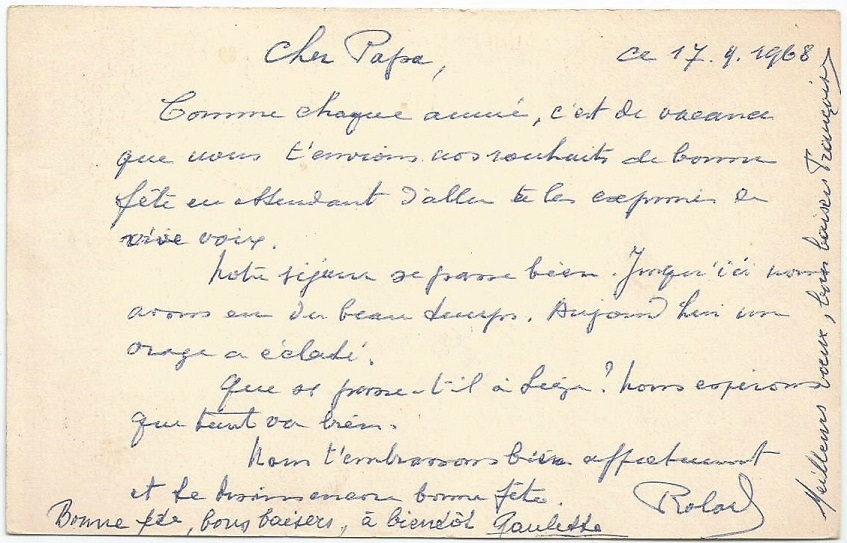 Cher Papa,
ce 17.9.1968
Comme chaque année, c'est de vacance
que nous t'envoions nos souhaits de bonne
fête en attendant d'aller te les exprimer de
vive voix.
Notre séjour se passe bien. Jusqu'ici nous
avons eu du beau temps. Aujourd'hui un
orage a éclaté.
Que se passe-t-il à Liège? Nous espérons
que tout va bien.
Nous t'embrassons bien affectueusement
et te disons encore bonne fête.
Roland
Bonne fête, bons baisers, à bientôt Paulette
Meilleurs voeux, bons baisers Françoise